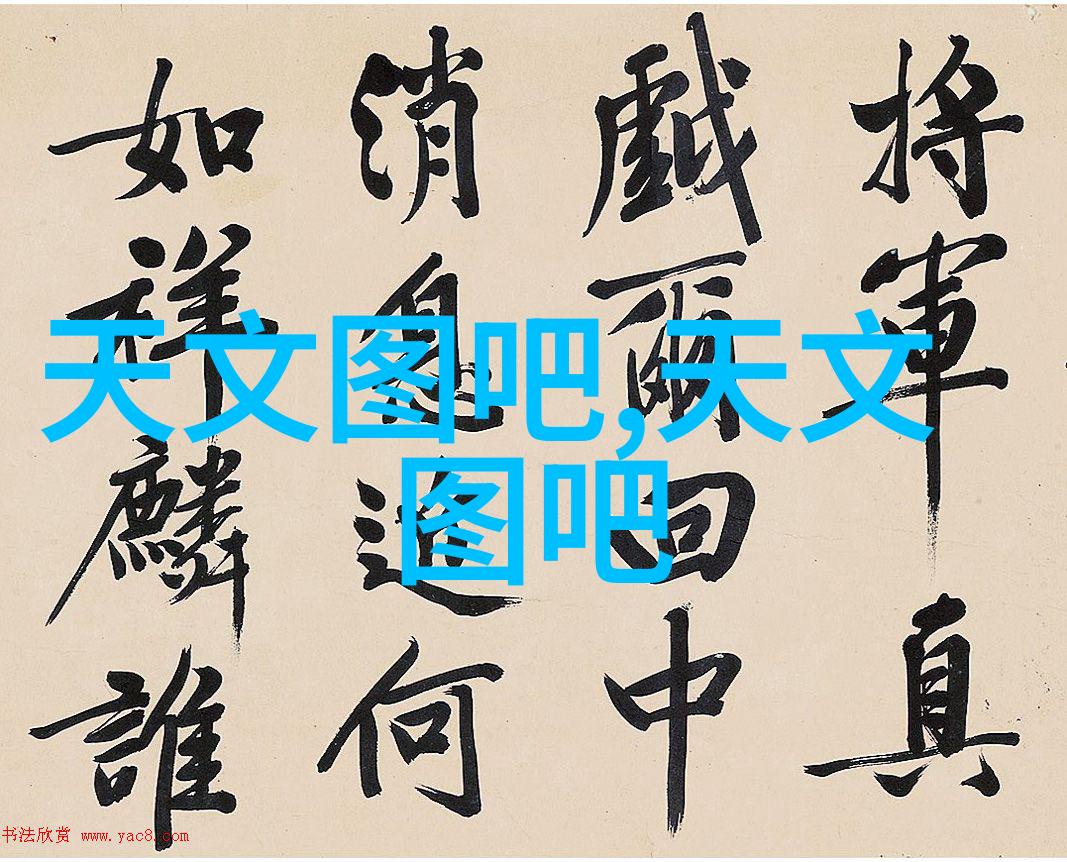 將軍真
戲爾回中
消息何
如祥麟誰
天文图吧,天文
图吧
书法欣赏 www.yac8.com